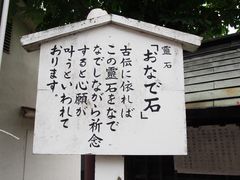 靈石
「おなで石」
古伝に依れば
この靈石をなで
なでしながら祈念
すると心願が
叶うといわれて
おります。